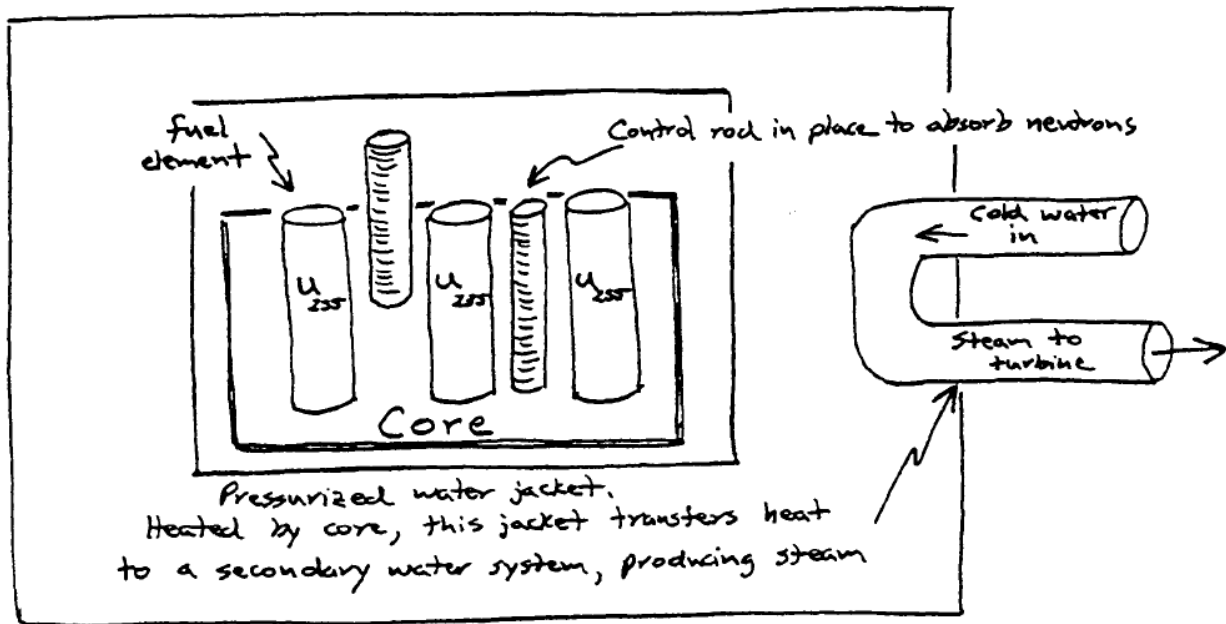 fuel
element
Control rod in place to absorb neutrons
U 235
U 235
U 235
Core
cold water
in
steam to
turbine
Pressurized water jacket.
Heated by core, this jacket transfers heat
to a secondary water system, producing steam